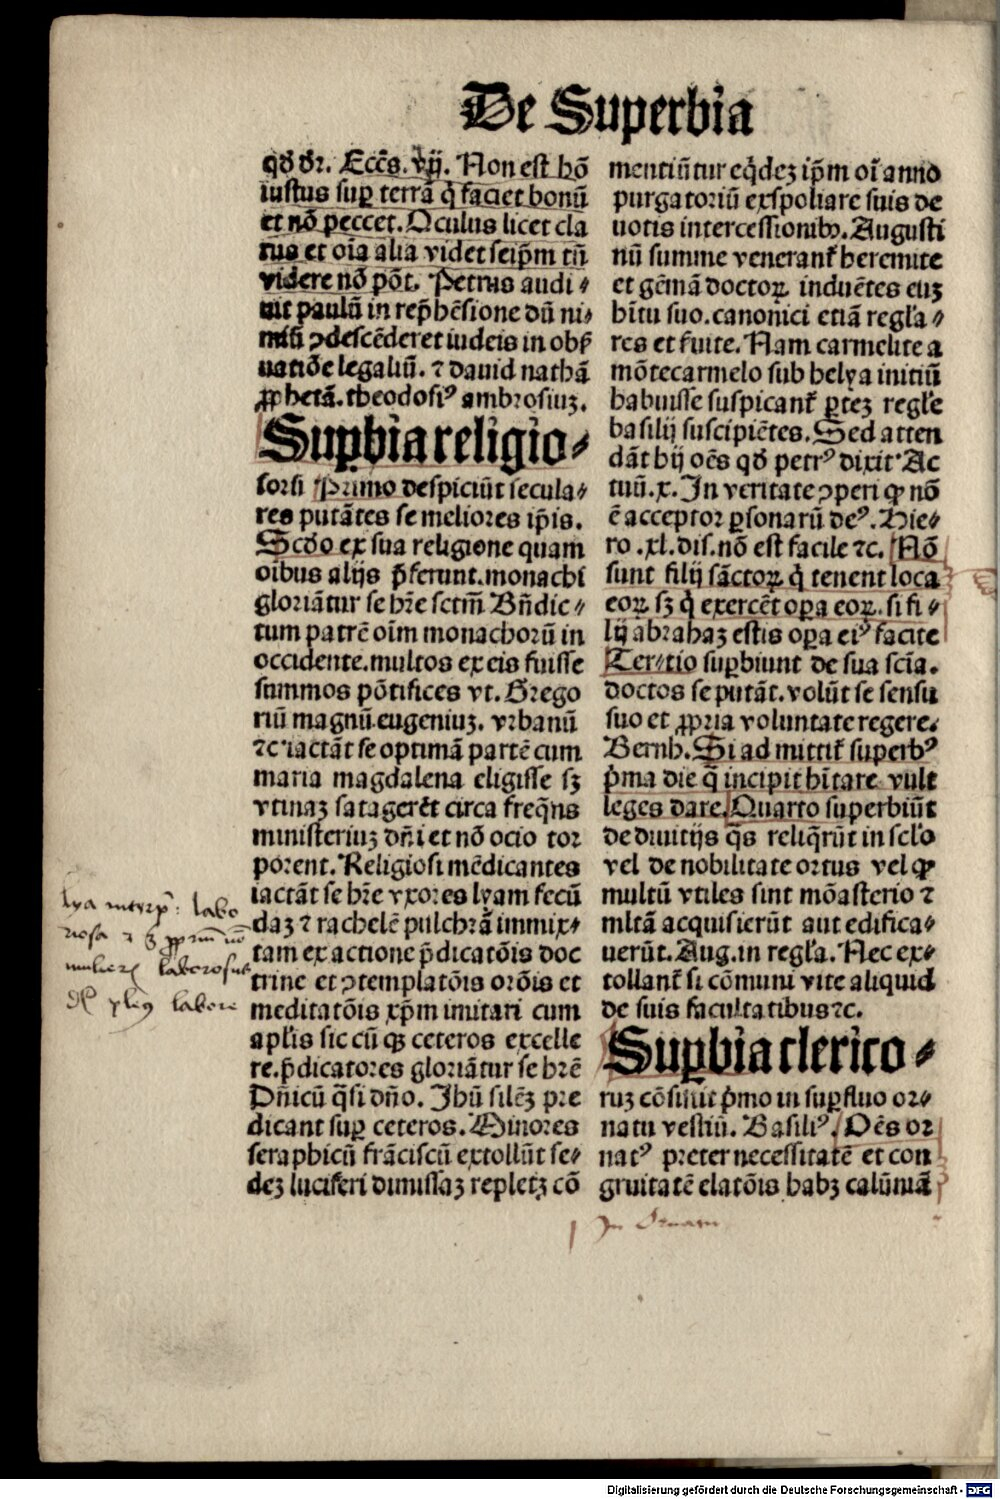 De Superbia
qď dr̄. Eccēs. vij. Non est hō
iustus suꝑ terrā q̄ faciet bonū
et nō peccet. Oculus licet cla
rus et oīa alia videt seip̄m tn̄
videre nō pōt. Petrus audi⸗
uit paulū in rep̄hēsione dū ni⸗
mis ꝯdescēderet iudeis in obẜ
uatiōe legaliū. ⁊ dauid nathā
ꝓphetā. theodosiꝰ ambrosiuꝫ.
Suꝑbia religio⸗
sorū Primo despiciūt secula⸗
res putātes se meliores ip̄is.
Scďo ex sua religione quam
oībus alijs p̄ferunt. monachi
gloriātur se hr̄e sctm̄ Bn̄dic⸗
tum patrē oīm monachorū in
occidente. multos ex eis fuisse
summos pōtifices vt. Grego
riū magnū. eugeniuꝫ. vrbanū
⁊c iactāt se optimā partē cum
maria magdalena eligisse sꝫ
vtinaꝫ satagerēt circa freq̄ns
ministeriuꝫ dn̄i et nō ocio tor
porent. Religiosi mēdicantes
iactāt se hr̄e vxores lyam fecū
daꝫ ⁊ rachelē pulchrā immix⸗
tam ex actione p̄dicatōis doc
trine et ꝯtemplatōis orōis et
meditatōis xp̄m imitari cum
apl̄is sic cū qꝫ ceteros excelle
re. p̄dicatores gloriātur se hr̄e
Dn̄icū q̄si dn̄o. Jhū silēꝫ pre
dicant suꝑ ceteros. Minores
seraphicū frāciscū extollūt se⸗
deꝫ luciferi dimissaꝫ repletꝫ cō
mentiūtur eq̄deꝫ ip̄m oī anno
purgatoriū exspoliare suis de
uotis intercessionibꝰ. Augusti
nū summe venerant᷒ heremite
et gēmā doctoꝝ induētes eiꝫ
hītu suo. canonici etiā regl̄a⸗
res et ẜuite. Nam carmelite a
mōte carmelo sub helya initiū
habuisse suspicant᷒ ꝑteꝫ regl̄e
basilij suscipiētes. Sed atten
dāt hij oēs qď petrꝰ dixit Ac
tuū. x. In veritate ꝯperi ꝙ nō
ē acceptor ꝑsonarū deꝰ. Hie⸗
ro. xl. dis. nō est facile ⁊c. Nō
sunt filij sāctoꝝ q̄ tenent loca
eoꝝ sꝫ q̄ exercēt oꝑa eoꝝ. si fi⸗
lij abrahaꝫ estis oꝑa eiꝰ facite
Ter⸗tio suꝑbiunt de sua scīa.
doctos se putāt. volūt se sensu
suo et ꝓpria voluntate regere.
Bernh. Si ad mittit᷒ superbꝰ
p̄ma die q̄ incipit hītare vult
leges dare. Quarto superbiūt
de diuitijs q̄s reliq̄rūt in scl̄o
vel de nobilitate ortus vel ꝙ
multū vtiles sint mōasterio ⁊
ml̄tā acquisierūt aut edifica⸗
uerūt. Aug. in regl̄a. Nec ex⸗
tollant᷒ si cōmuni vite aliquid
de suis facultatibus ⁊c.
Suꝑbia clerico⸗
ruꝫ cōsistit p̄mo in suꝑfluo or⸗
natu vestiū. Basiliꝰ. Oēs or
natꝰ preter necessitatē et con
gruitatē elatōis habꝫ calūniā
lya
labo
laborosus
labore
In Ornatu
Digitalisierung gefördert durch die Deutsche Forschungsgemeinschaft - DFG